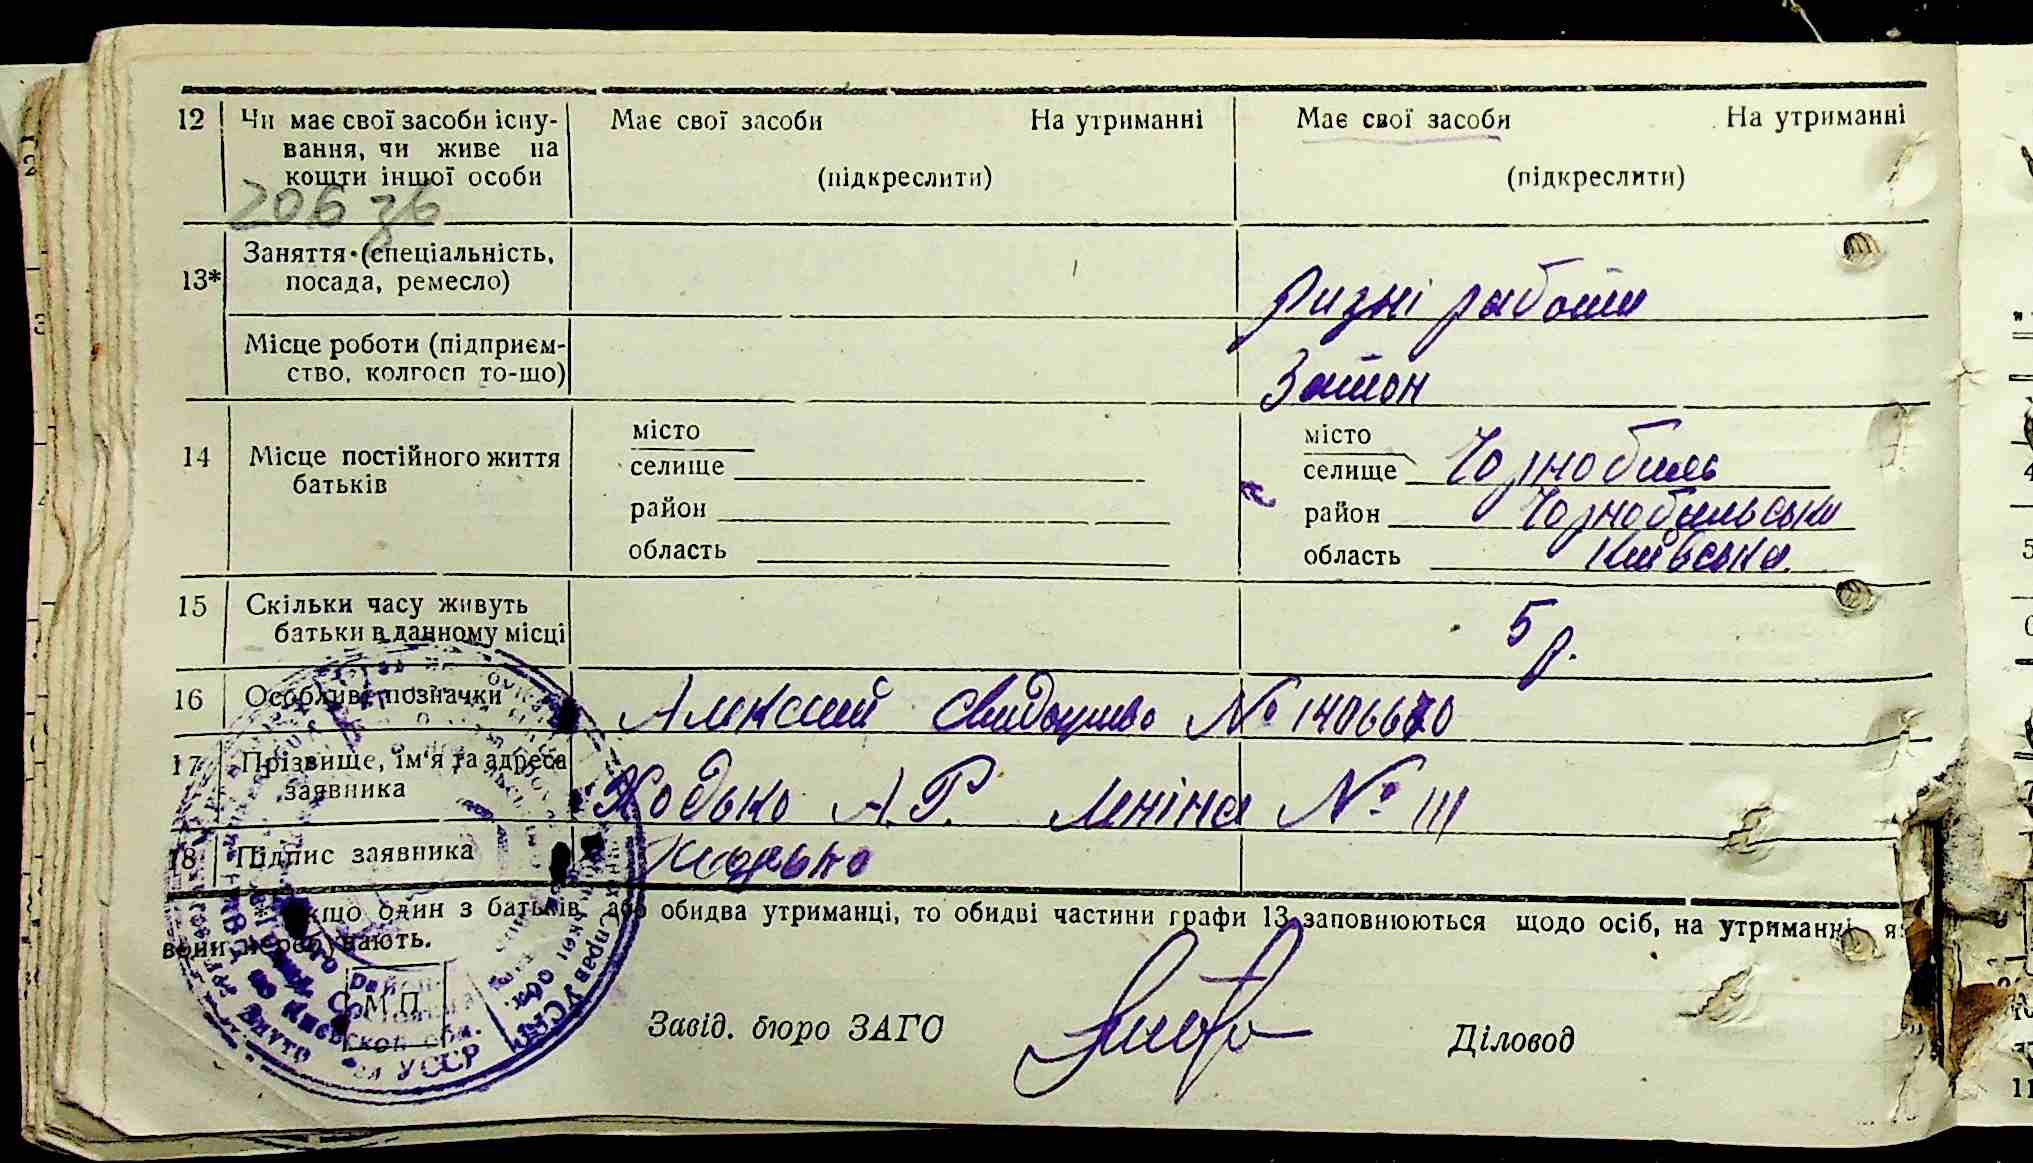 12 Чи має свої засоби існу- Має свої засоби На утриманні Має свої засоби На утриманні
вання, чи живе на
кошти іншої особи (підкреслити) (підкреслити)
206 зв
Заняття (спеціальність,
13* посада, ремесло) Ризні работи
Місце роботи (підприєм-
ство, колгосп то-що) Затон
місто місто
14 Місце постійного життя селище селище Чорнобиль
батьків
район район Чорнобильськи
область область Київська
15 Скільки часу живуть 5 р.
батьки в данному місці
16 Особливі позначки Алексий Свидоцтво № 1406670
17 Прізвище, ім'я та адреса
заявника Ходько А.Р. Леніна № 111
18 Підпис заявника Ходько
кщо один з батьків або обидва утриманці, то обидві частини графи 13 заповнюються щодо осіб, на утриманні я
вони перебувають.
М.П.
Завід. бюро ЗАГО Діловод
Киевской обл.
УССР